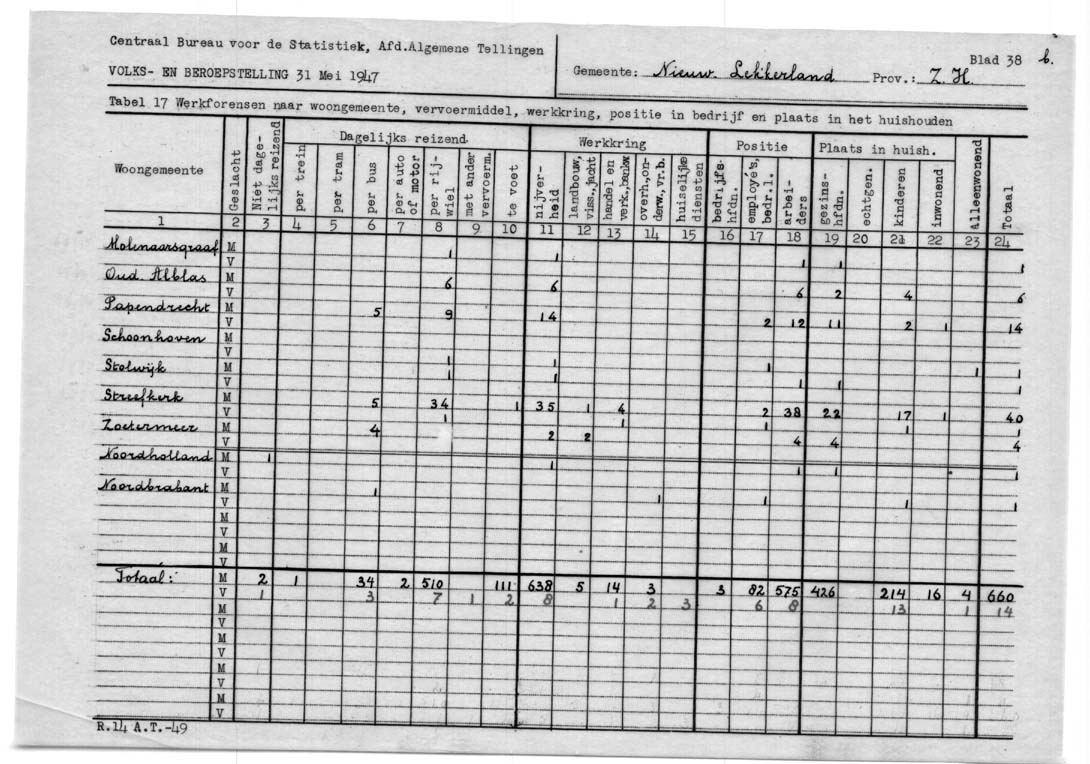 Centraal Bureau voor de Statistiek, Afd.Algemene Tellingen
VOLKS- EN BEROEPSTELLING 31 Mei 1947
Blad 38 b.
Gemeente: Nieuw. Lekkerland Prov.: Z.H.
Tabel 17 Werkforensen naar woongemeente, vervoermiddel, werkkring, positie in bedrijf en plaats in het huishouden
Woongemeente Geslacht Niet dage- lijks reizend Dagelijks reizend Werkkring Positie Plaats in huish. Alleenwonend Totaal
per trein per tram per bus per auto of motor per rij- wiel met ander vervoerm. te voet nijver- heid landbouw, viss.,jacht handel en verk.,bankw overh.,on- derw.,vr.b. huiselijke diensten bedrijfs- hfdn. employé's, bedr.l. arbei- ders gezins- hfdn. echtgen. kinderen inwonend
1 2 3 4 5 6 7 8 9 10 11 12 13 14 15 16 17 18 19 20 21 22 23 24
Molenaarsgraaf M 1 1 1 1 1
V
Oud Alblas M 6 6 6 2 4 6
V
Papendrecht M 5 9 14 2 12 11 2 1 14
V
Schoonhoven M
V
Stolwijk M 1 1 1 1 1
V 1 1 1 1 1
Streefkerk M 5 34 1 35 1 4 2 38 22 17 1 40
V 1 1 1 1 1
Zoetermeer M 4 2 2 4 4 4
V
Noordholland M 1 1 1 1 1
V
Noordbrabant M 1 1 1 1 1
V
M
V
M
V
Totaal: M 2 1 34 2 510 111 638 5 14 3 3 82 575 426 214 16 4 660
V 1 3 7 1 2 8 1 2 3 6 8 13 1 14
M
V
M
V
M
V
M
V
R.14 A.T.-49